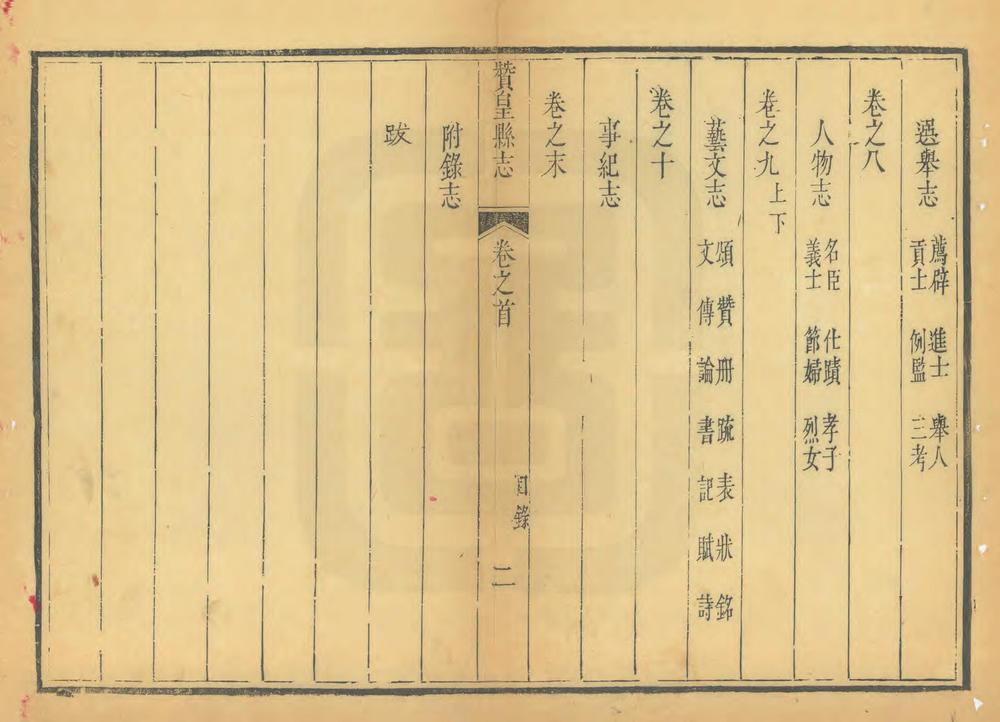 選舉志 薦辟 進士 舉人
貢士 例監 三考
卷之八
人物志 名臣 仕蹟 孝子
義士 節婦 烈女
卷之九上下
藝文志 頌 贊 冊 疏 表 狀 銘
文 傳 論 書 記 賦 詩
卷之十
事紀志
卷之末
贊皇縣志 卷之首 目錄 二
附錄志
跋